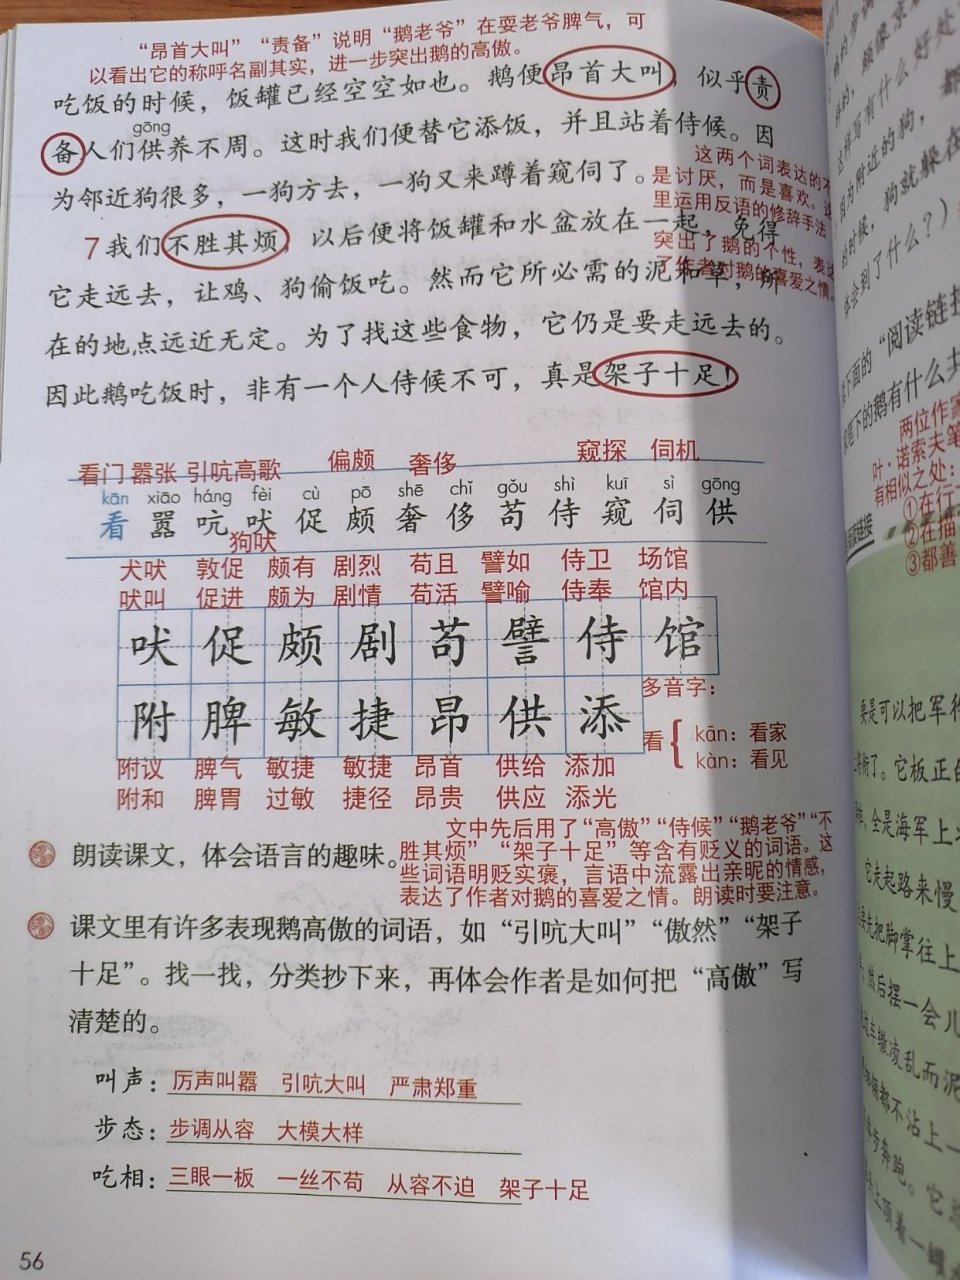 “昂首大叫”“责备”说明“鹅老爷”在耍老爷脾气，可
以看出它的称呼名副其实，进一步突出鹅的高傲。
吃饭的时候，饭罐已经空空如也。鹅便昂首大叫，似乎责
gōng
备人们供养不周。这时我们便替它添饭，并且站着侍候。因
为邻近狗很多，一狗方去，一狗又来蹲着窥伺了。
这两个词表达的不
是讨厌，而是喜欢。这
里运用反语的修辞手法
突出了鹅的个性，表达
了作者对鹅的喜爱之情。
7 我们不胜其烦，以后便将饭罐和水盆放在一起，免得
它走远去，让鸡、狗偷饭吃。然而它所必需的泥和草，所
在的地点远近无定。为了找这些食物，它仍是要走远去的。
因此鹅吃饭时，非有一个人侍候不可，真是架子十足！
看门 嚣张 引吭高歌 偏颇 奢侈 窥探 伺机
kān xiāo háng fèi cù pō shē chǐ gǒu shì kuī sì gōng
看 嚣 吭 吠 促 颇 奢 侈 苟 侍 窥 伺 供
狗吠
犬吠 敦促 颇有 剧烈 苟且 譬如 侍卫 场馆
吠叫 促进 颇为 剧情 苟活 譬喻 侍奉 馆内
吠 促 颇 剧 苟 譬 侍 馆
附 脾 敏 捷 昂 供 添
多音字：
看 { kān：看家
kàn：看见
附议 脾气 敏捷 敏捷 昂首 供给 添加
附和 脾胃 过敏 捷径 昂贵 供应 添光
朗读课文，体会语言的趣味。
文中先后用了“高傲”“侍候”“鹅老爷”“不
胜其烦”“架子十足”等含有贬义的词语。这
些词语明贬实褒，言语中流露出亲昵的情感，
表达了作者对鹅的喜爱之情。朗读时要注意。
课文里有许多表现鹅高傲的词语，如“引吭大叫”“傲然”“架子
十足”。找一找，分类抄下来，再体会作者是如何把“高傲”写
清楚的。
叫声：厉声叫嚣 引吭大叫 严肃郑重
步态：步调从容 大模大样
吃相：三眼一板 一丝不苟 从容不迫 架子十足
56
样写有什么好处
为附近的狗，
的时候，狗就躲在
体会到了什么？）
下面的“阅读链接
笔下的鹅有什么共
两位作家
叶·诺索夫笔
有相似之处：
①在行
②在描
③都善
阅读链接
要是可以把军衔
衔了。它板正的
全是海军上将
它走起路来慢
要先把脚掌往上
然后摆一会儿
车辙凌乱而泥
都不沾上一
步奔跑。它
上顶着一罐